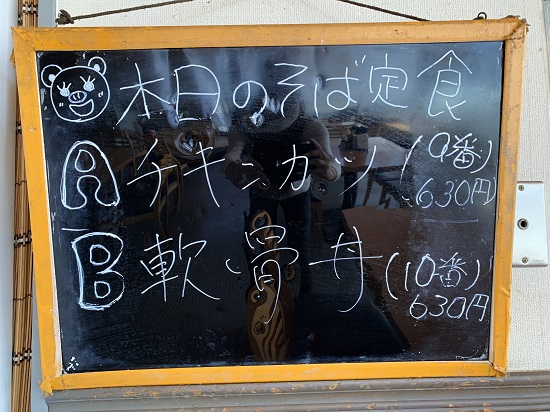 本日のそば定食
A チキンカツ (9番)
630円
B 軟骨丼 (10番)
630円